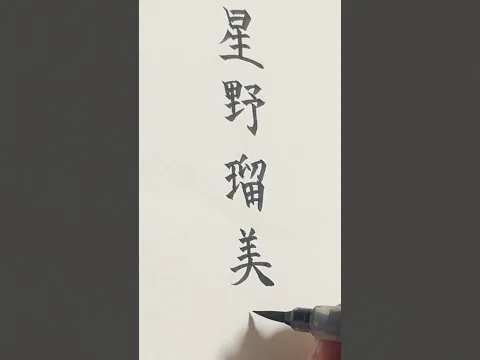 星野瑠美